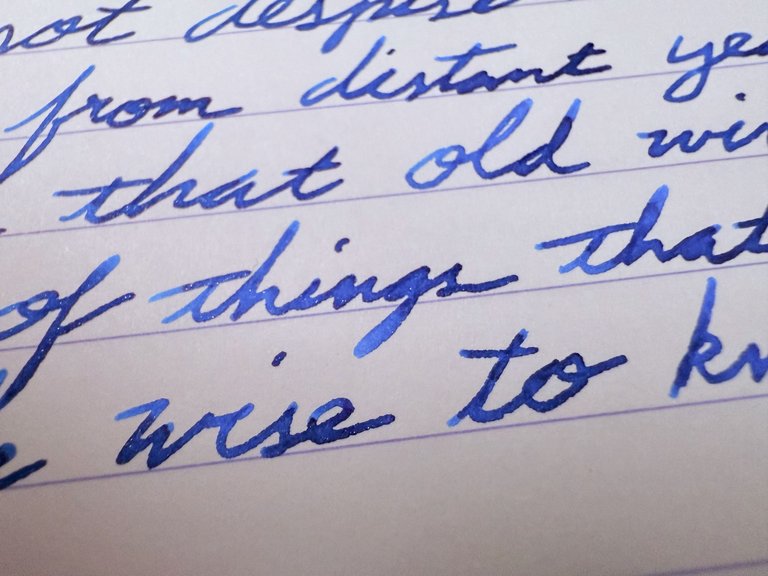 not despise
from distant
that old
of things that
wise to